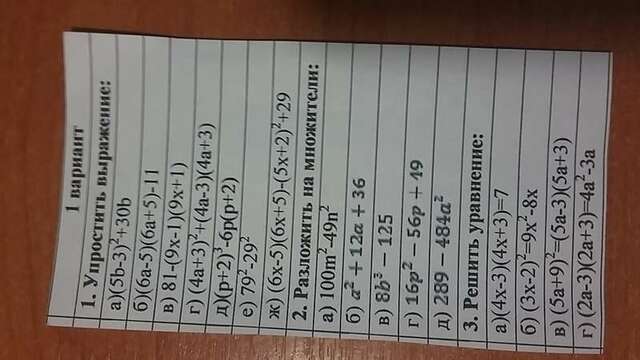 1 вариант
1. Упростить выражение:
а)(5b-3)²+30b
б)(6а-5)(6а+5)-11
в) 81-(9х-1)(9х+1)
г) (4а+3)²+(4а-3)(4а+3)
д)(р+2)³-6р(р+2)
е) 79²-29²
ж) (6х-5)(6х+5)-(5х+2)²+29
2. Разложить на множители:
а) 100m²-49n²
б) a² + 12a + 36
в) 8b³ − 125
г) 16p² − 56p + 49
д) 289 − 484a²
3. Решить уравнение:
а)(4х-3)(4х+3)=7
б) (3х-2)²=9х²-8х
в) (5а+9)²=(5а-3)(5а+3)
г) (2а-3)(2а+3)=4а²-3а